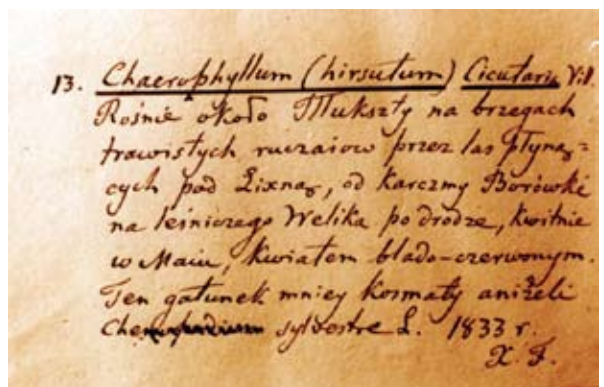 13. Chaerophyllum (hirsutum) Cicutaria Vill.
Rośnie około Illukszty na brzegach
trawistych ruczaiow przez las płyną=
cych pod Lixną, od Karczmy Borówki
na leśniczego Welika po drodze, kwitnie
w Maiu, kwiatem blado-czerwonym.
Ten gatunek mniey kosmaty aniżeli
sylvestre L. 1833 r.
X. F.